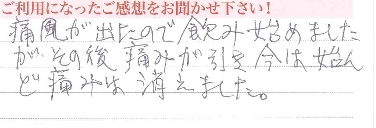 ご利用になったご感想をお聞かせ下さい!
痛風が出たので飲み始めました
が、その後痛みが引き今は始ん
ど痛みは消えました。